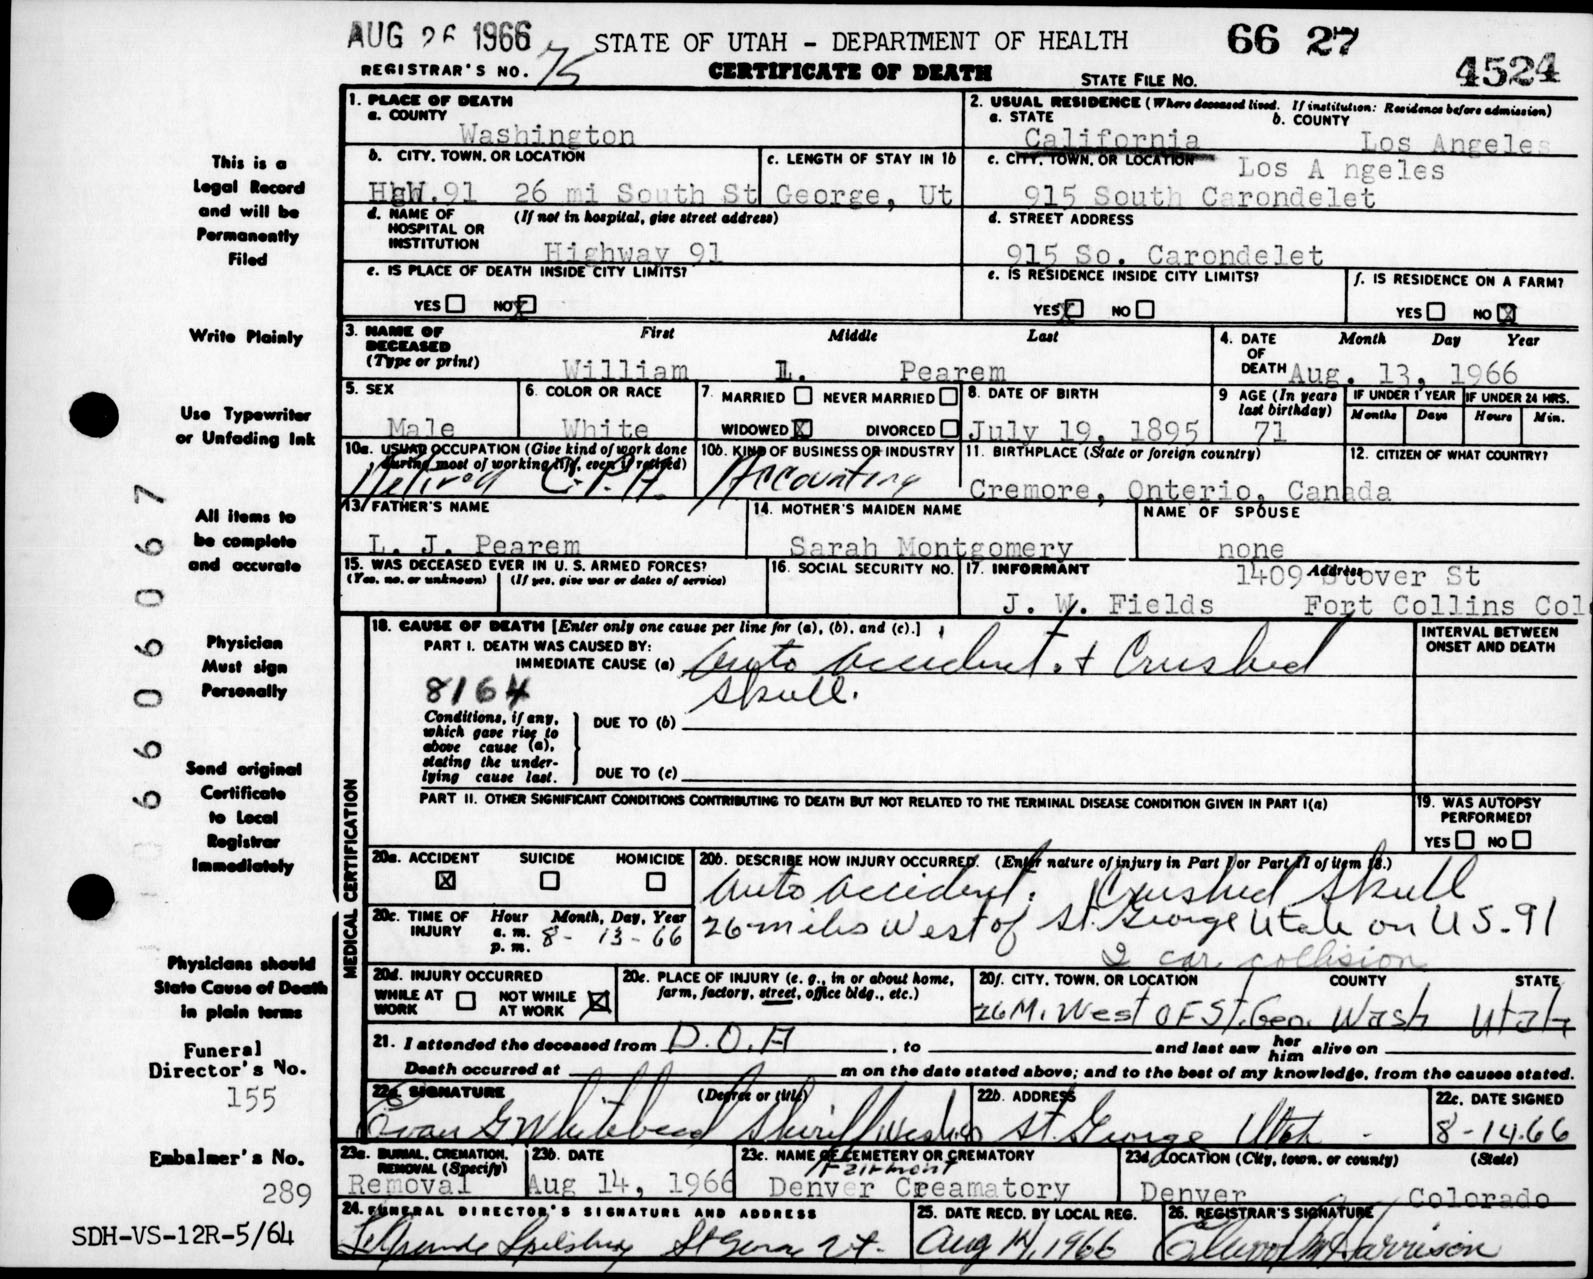 AUG 26 1966
STATE OF UTAH - DEPARTMENT OF HEALTH
66 27
REGISTRAR'S NO. 75
CERTIFICATE OF DEATH
STATE FILE NO.
4524
This is a
Legal Record
and will be
Permanently
Filed
Write Plainly
Use Typewriter
or Unfading Ink
All items to
be complete
and accurate
Physician
Must sign
Personally
Send original
Certificate
to Local
Registrar
Immediately
Physicians should
State Cause of Death
in plain terms
Funeral
Director's No.
155
Embalmer's No.
289
SDH-VS-12R-5/64
1. PLACE OF DEATH
a. COUNTY
Washington
2. USUAL RESIDENCE (Where deceased lived. If institution: Residence before admission)
a. STATE
b. COUNTY
California
Los Angeles
b. CITY, TOWN, OR LOCATION
c. LENGTH OF STAY IN 1b
c. CITY, TOWN, OR LOCATION
Los A ngeles
HgW.91 26 mi South St George, Ut
915 South Carondelet
d. NAME OF HOSPITAL OR INSTITUTION
(If not in hospital, give street address)
Highway 91
d. STREET ADDRESS
915 So. Carondelet
e. IS PLACE OF DEATH INSIDE CITY LIMITS?
YES NO X
e. IS RESIDENCE INSIDE CITY LIMITS?
YES X NO
f. IS RESIDENCE ON A FARM?
YES NO X
3. NAME OF DECEASED
(Type or print)
First Middle Last
William L. Pearem
4. DATE OF DEATH
Month Day Year
Aug. 13, 1966
5. SEX
Male
6. COLOR OR RACE
White
7. MARRIED NEVER MARRIED
WIDOWED X DIVORCED
8. DATE OF BIRTH
July 19, 1895
9 AGE (In years last birthday)
71
IF UNDER 1 YEAR
Months Days
IF UNDER 24 HRS.
Hours Min.
10a. USUAL OCCUPATION (Give kind of work done during most of working life, even if retired)
Retired C.P.A.
10b. KIND OF BUSINESS OR INDUSTRY
Accounting
11. BIRTHPLACE (State or foreign country)
Cremore, Onterio, Canada
12. CITIZEN OF WHAT COUNTRY?
13. FATHER'S NAME
L. J. Pearem
14. MOTHER'S MAIDEN NAME
Sarah Montgomery
NAME OF SPOUSE
none
15. WAS DECEASED EVER IN U. S. ARMED FORCES?
(Yes, no, or unknown) (If yes, give war or dates of service)
16. SOCIAL SECURITY NO.
17. INFORMANT
J. W. Fields
Address
1409 Stover St
Fort Collins Col
MEDICAL CERTIFICATION
18. CAUSE OF DEATH [Enter only one cause per line for (a), (b), and (c).]
PART I. DEATH WAS CAUSED BY:
IMMEDIATE CAUSE (a)
Auto Accident. + Crushed
Skull.
8164
INTERVAL BETWEEN
ONSET AND DEATH
Conditions, if any,
which gave rise to
above cause (a),
stating the under-
lying cause last.
DUE TO (b)
DUE TO (c)
PART II. OTHER SIGNIFICANT CONDITIONS CONTRIBUTING TO DEATH BUT NOT RELATED TO THE TERMINAL DISEASE CONDITION GIVEN IN PART I(a)
19. WAS AUTOPSY
PERFORMED?
YES NO
20a. ACCIDENT SUICIDE HOMICIDE
X
20b. DESCRIBE HOW INJURY OCCURRED. (Enter nature of injury in Part I or Part II of item 18.)
Auto Accident. Crushed Skull
26 miles West of St. George Utah on U S-91
2 car collision
20c. TIME OF INJURY
Hour Month, Day, Year
a. m.
p. m.
8- 13-66
20d. INJURY OCCURRED
WHILE AT WORK
NOT WHILE AT WORK X
20e. PLACE OF INJURY (e. g., in or about home,
farm, factory, street, office bldg., etc.)
20f. CITY, TOWN, OR LOCATION COUNTY STATE
26 M. West OF St. Geo. Wash Utah
21. I attended the deceased from D.O.A , to and last saw her him alive on
Death occurred at m on the date stated above; and to the best of my knowledge, from the causes stated.
22a. SIGNATURE (Degree or title)
Evan G Whitehead Sheriff Wash Co
22b. ADDRESS
St. George Utah
22c. DATE SIGNED
8-14-66
23a. BURIAL, CREMATION,
REMOVAL (Specify)
Removal
23b. DATE
Aug 14, 1966
23c. NAME OF CEMETERY OR CREMATORY
Fairmont
Denver Creamatory
23d. LOCATION (City, town, or county) (State)
Denver Colorado
24. FUNERAL DIRECTOR'S SIGNATURE AND ADDRESS
LeGrande Spilsbury St George Ut.
25. DATE RECD. BY LOCAL REG.
Aug 14, 1966
26. REGISTRAR'S SIGNATURE
Harrison